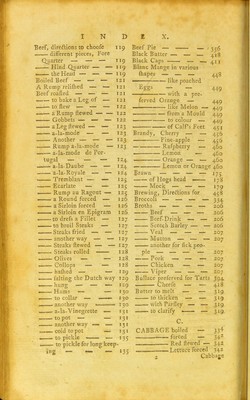 I N D E X.
Beef, directions to choose 119
—— different pieces, Fore
Quarter — — — 119
—— Hind Quarter — — 119
—— the Head — — 119
Boiled Beef — — — 121
A Rump ditto — — 121
Beef roasted — — — 121
—— to bake a Leg of — 121
—— to stew — — — 121
—— a Rump stewed — — 121
—— Gobbets — — — 122
—— a Leg stewed — — 123
—— a-la-mode — — 123
—— Another — — — 124
—— Rump a-la-mode — 123
—— a-la-mode de Por-
tugal — — — 124
—— a-la-Daube — — 124
—— a-la-Royale — — 124
—— Tremblant — — 124
—— Escarlate — — 125
—— Rump au Ragout — 125
—— a Round forced — 126
—— a Sirloin forced — 126
—— a Sirloin en Epigram 126
—— to dress a Fillet — 127
—— to broil Steaks — 127
—— Steaks fried — — 127
—— another way — — 127
—— Steaks stewed — — 127
—— Steaks rolled — — 128
—— Olives — — — 128
—— Collops — — — 128
—— hashed — — — 129
—— ditto the Dutch way 129
—— hung — — — 129
—— Hams — — — 130
—— to collar — — — 130
—— another way — — 130
—— a-la-Vinegrette — 131
—— to pot — — — 131
—— another way — — 131
—— cold to pot — — 131
—— to pickle — — — 135
—— to pickle for long keep-
ing — — — 135
Beef Pie — — — 336
Black Butter — — — 418
Black Caps — — — 411
Blanc Mange in various
shapes — — — 448
—— like poached
Eggs — — — 449
—— with a pre-
served Orange — — 449
—— like Melon — 449
—— from a Mould 449
—— to colour — 451
—— of Calf's Feet 451
Brandy, Cherry — — 460
—— Pine-apple — 460
—— Raspberry — 460
—— Lemon — — 460
—— Orange — — 460
—— Lemon or Orange 460
Brawn — — — 175
—— of Hogs head — 178
—— Mock — — 179
Brewing, Directions for 428
Broccoli — — — 334
Broths — — — 206
—— Beef — — — 206
—— Beef Drink — — 206
—— Scotch Barley — — 206
—— Veal — — — 207
—— Mutton — — — 207
—— another for sick peo-
ple — — — 207
—— Pork — — — 207
—— Chicken — — — 207
—— Viper — — — 207
Bullace preserved for Tarts 394
—— Cheese — — 428
Butter to melt — — 319
—— to thicken — — 319
—— with Parsley — — 319
—— to clarify — — 319
C.
CABBAGE boiled — 336
—— forced — 342
—— Red stewed — 342
—— Lettuce forced 342
2 Cabbage